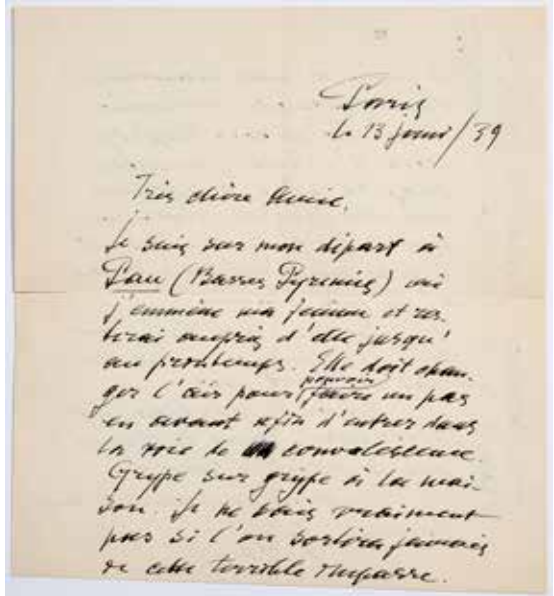 Paris
le 13 janv/39
Très chère Amie,
Je suis sur mon départ à
Pau (Basses Pyrenées) où
j'emmène ma femme et res-
terai auprès d'elle jusqu'
au printemps. Elle doit chan-
ger l'air pour pouvoir faire un pas
en avant afin d'entrer dans
la voie de convalescence.
Grippe sur grippe à la mai-
son. Je ne sais vraiment
pas si l'on sortira jamais
de cette terrible impasse.